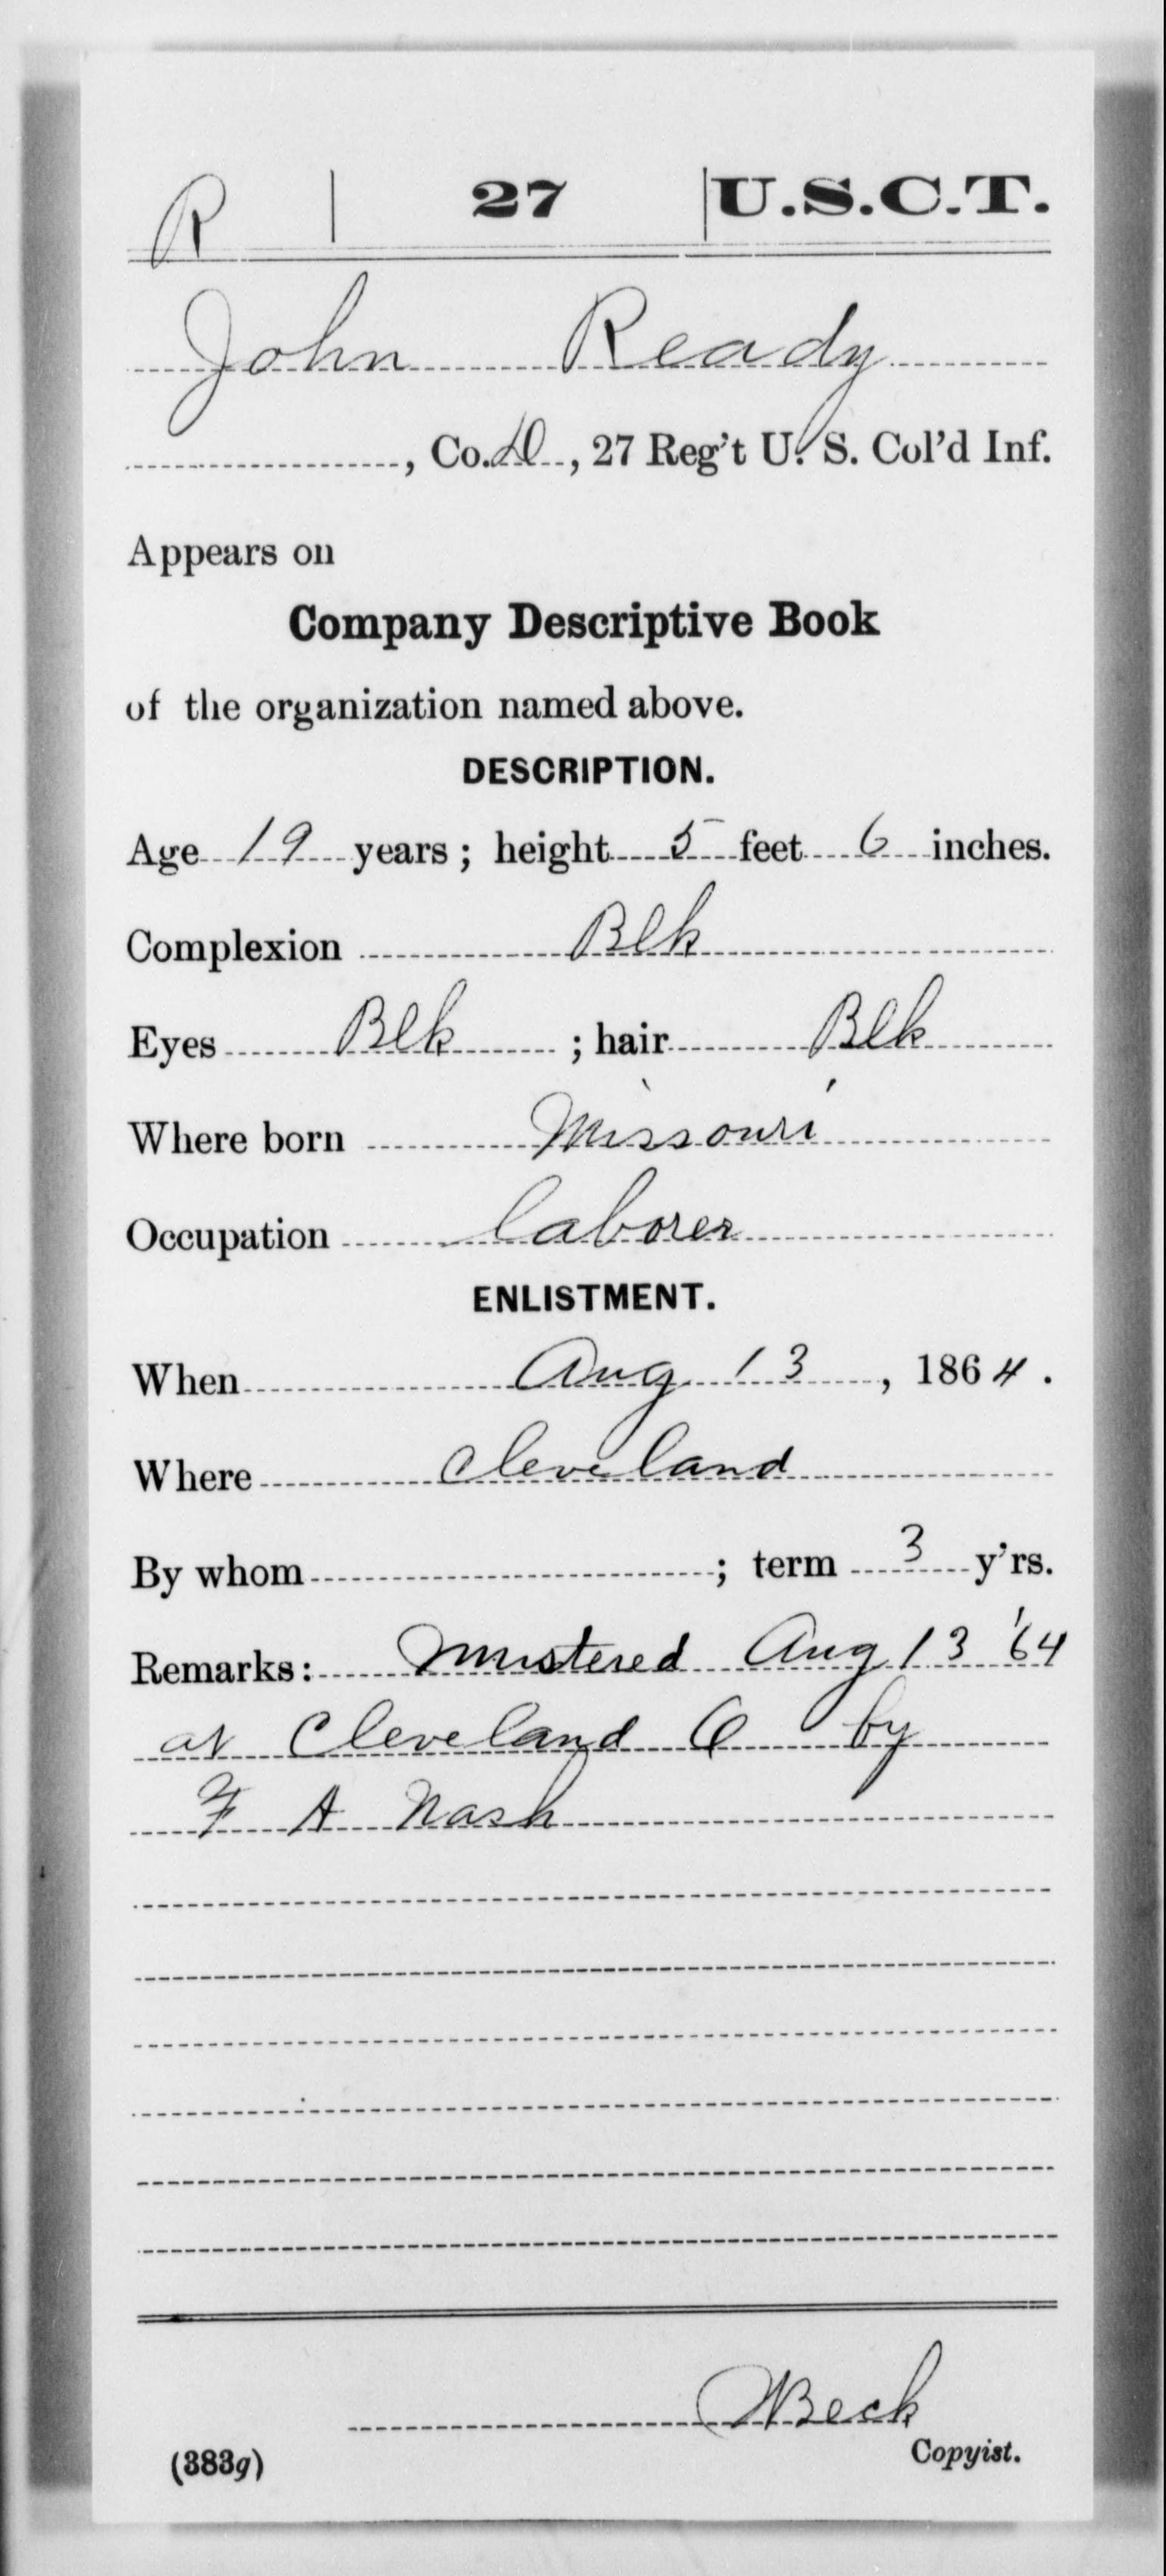 R 27 U.S.C.T.
John Ready
, Co. D, 27 Reg't U. S. Col'd Inf.
Appears on
Company Descriptive Book
of the organization named above.
DESCRIPTION.
Age 19 years; height 5 feet 6 inches.
Complexion Blk
Eyes Blk ; hair Blk
Where born Missouri
Occupation laborer
ENLISTMENT.
When Aug 13, 1864.
Where Cleveland
By whom ; term 3 y'rs.
Remarks: Mustered Aug 13 '64
at Cleveland O by
F A Nash
WBeck
Copyist.
(383g)